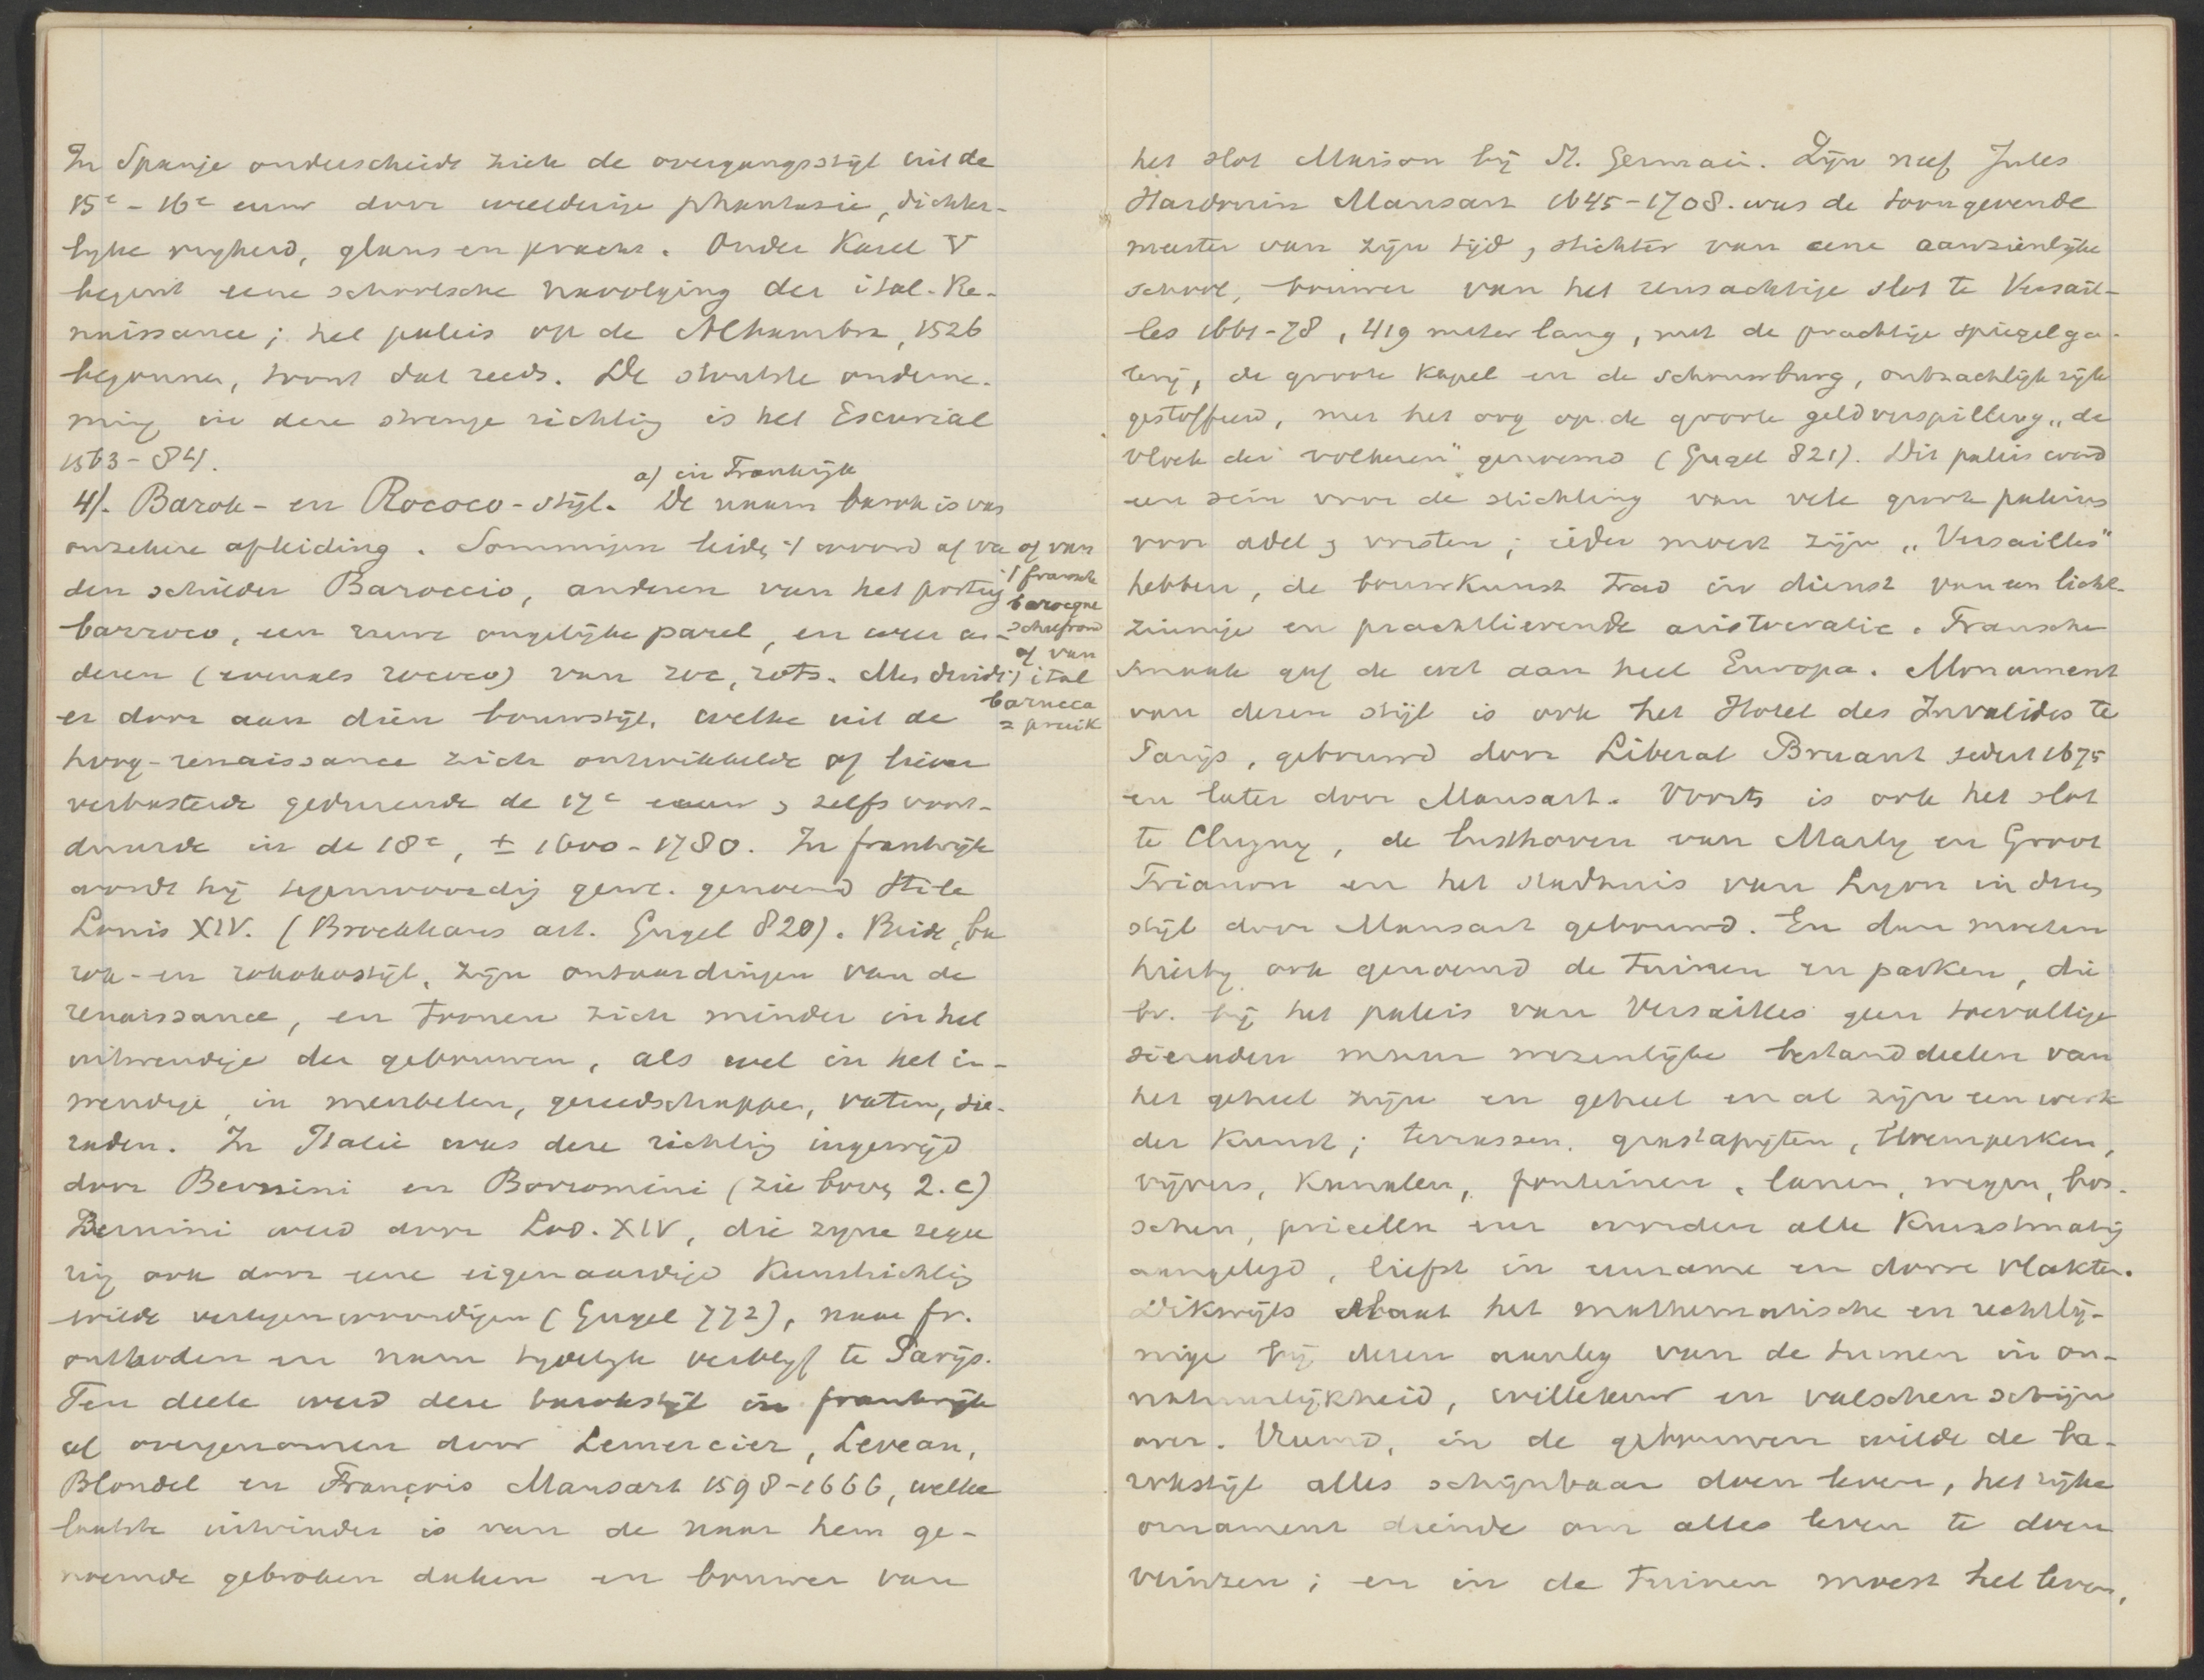 In Spanje onderscheidt zich de overgangsstijl uit de
15e - 16e eeuw door weelderige phantasie, dichter-
lyke vryheid, glans en pracht. Onder Karel V
begint eene schoolsche navolging der ital. Re-
naissance; het paleis op de Alhambra, 1526
begonnen, toont dat reeds. De stoutste onderne-
ming in deze strenge richting is het Escurial
1563-84.
a) in Frankrijk
4). Barok- en Rococo-stijl. De naam barok is van
onzekere afleiding. Sommigen leiden 't woord af van
den schilder Baroccio, anderen van het portug
barroco, een ruwe ongelijke parel, en weer an-
deren (evenals rococo) van roc, rots. Men duidt
of van
't fransch
barocque
scheefrond
of van
ital
barucca
= pruik
er door aan dien bouwstijl, welke uit de
hoog-renaissance zich ontwikkelde of liever
verbasterde gedurende de 17e eeuw & zelfs voort-
duurde in de 18e, ± 1600-1780. In frankrijk
wordt hij tegenwoordig gew. genoemd Stile
Louis XIV. (Brockhaus art. Gugel 820). Beide, ba
rok- en rokokostijl, zijn ontaardingen van de
renaissance, en tronen zich minder in het
uitwendige der gebouwen, als wel in het in-
wendige, in meubelen, gereedschappen, vaten, sie-
raden. In Italie was deze richting ingewijd
door Bernini en Borromini (zie boven 2.c)
Bernini werd door Lod. XIV, die zyne regee
ring ook door eene eigenaardige kunstrichting
wilde vertegenwoordigen (Gugel 772), naar fr.
ontboden en nam tydelyk verblyf te Parijs.
Ten deele werd deze barokstijl in frankrijk
al overgenomen door Lemercier, Leveau,
Blondel en François Mansart 1598-1666, welke
laatste uitvinder is van de naar hem ge-
noemde gebroken daken en bouwer van
het slot Maison bij St. Germain. Zijn neef Jules
Hardouin Mansart 1645-1708. was de toongevende
meester van zijn tijd, stichter van eene aanzienlijke
school, bouwer van het reusachtige slot te Versail-
les 1661-78, 419 meter lang, met de prachtige spiegelga-
lerij, de groote kapel en de schouwburg, ontzachlijk rijk
gestoffeerd, met het oog op de groote geldverspilling „de
vloek der volkeren" genoemd (Gugel 821). Dit paleis werd
een sein voor de stichting van vele groote paleizen
voor adel & vorsten; ieder moest zijn „Versailles"
hebben, de bouwkunst trad in dienst van een licht-
zinnige en prachtlievende aristocratie. Fransche
smaak gaf de wet aan heel Europa. Monument
van dezen stijl is ook het Hotel des Invalides te
Parijs, gebouwd door Liberal Bruant sedert 1675
en later door Mansart. Voorts is ook het slot
te Clugny, de lusthoven van Marly en Groot
Trianon en het stadhuis van Lyon in dezen
stijl door Mansart gebouwd. En dan moeten
hierby ook genoemd de tuinen en parken, die
bv. bij het paleis van Versailles geen toevallige
sieraden maar wezenlijke bestanddeelen van
het geheel zijn en geheel en al zijn een werk
der kunst; terrassen, grastapijten, bloemperken,
vijvers, kanalen, fonteinen, lanen, wegen, bos-
schen, prieelen enz worden alle kunstmatig
aangelegd, liefst in eenzame en dorre vlakten.
Dikwijls slaat het mathematische en rechtlij-
nige bij dezen aanleg van de tuinen in on-
natuurlijkheid, willekeur en valschen schijn
over. Vreemd, in de gebouwen wilde de ba-
rokstijl alles schijnbaar doen leven, het rijke
ornament diende om alles leven te doen
veinzen; en in de tuinen moest het leven,